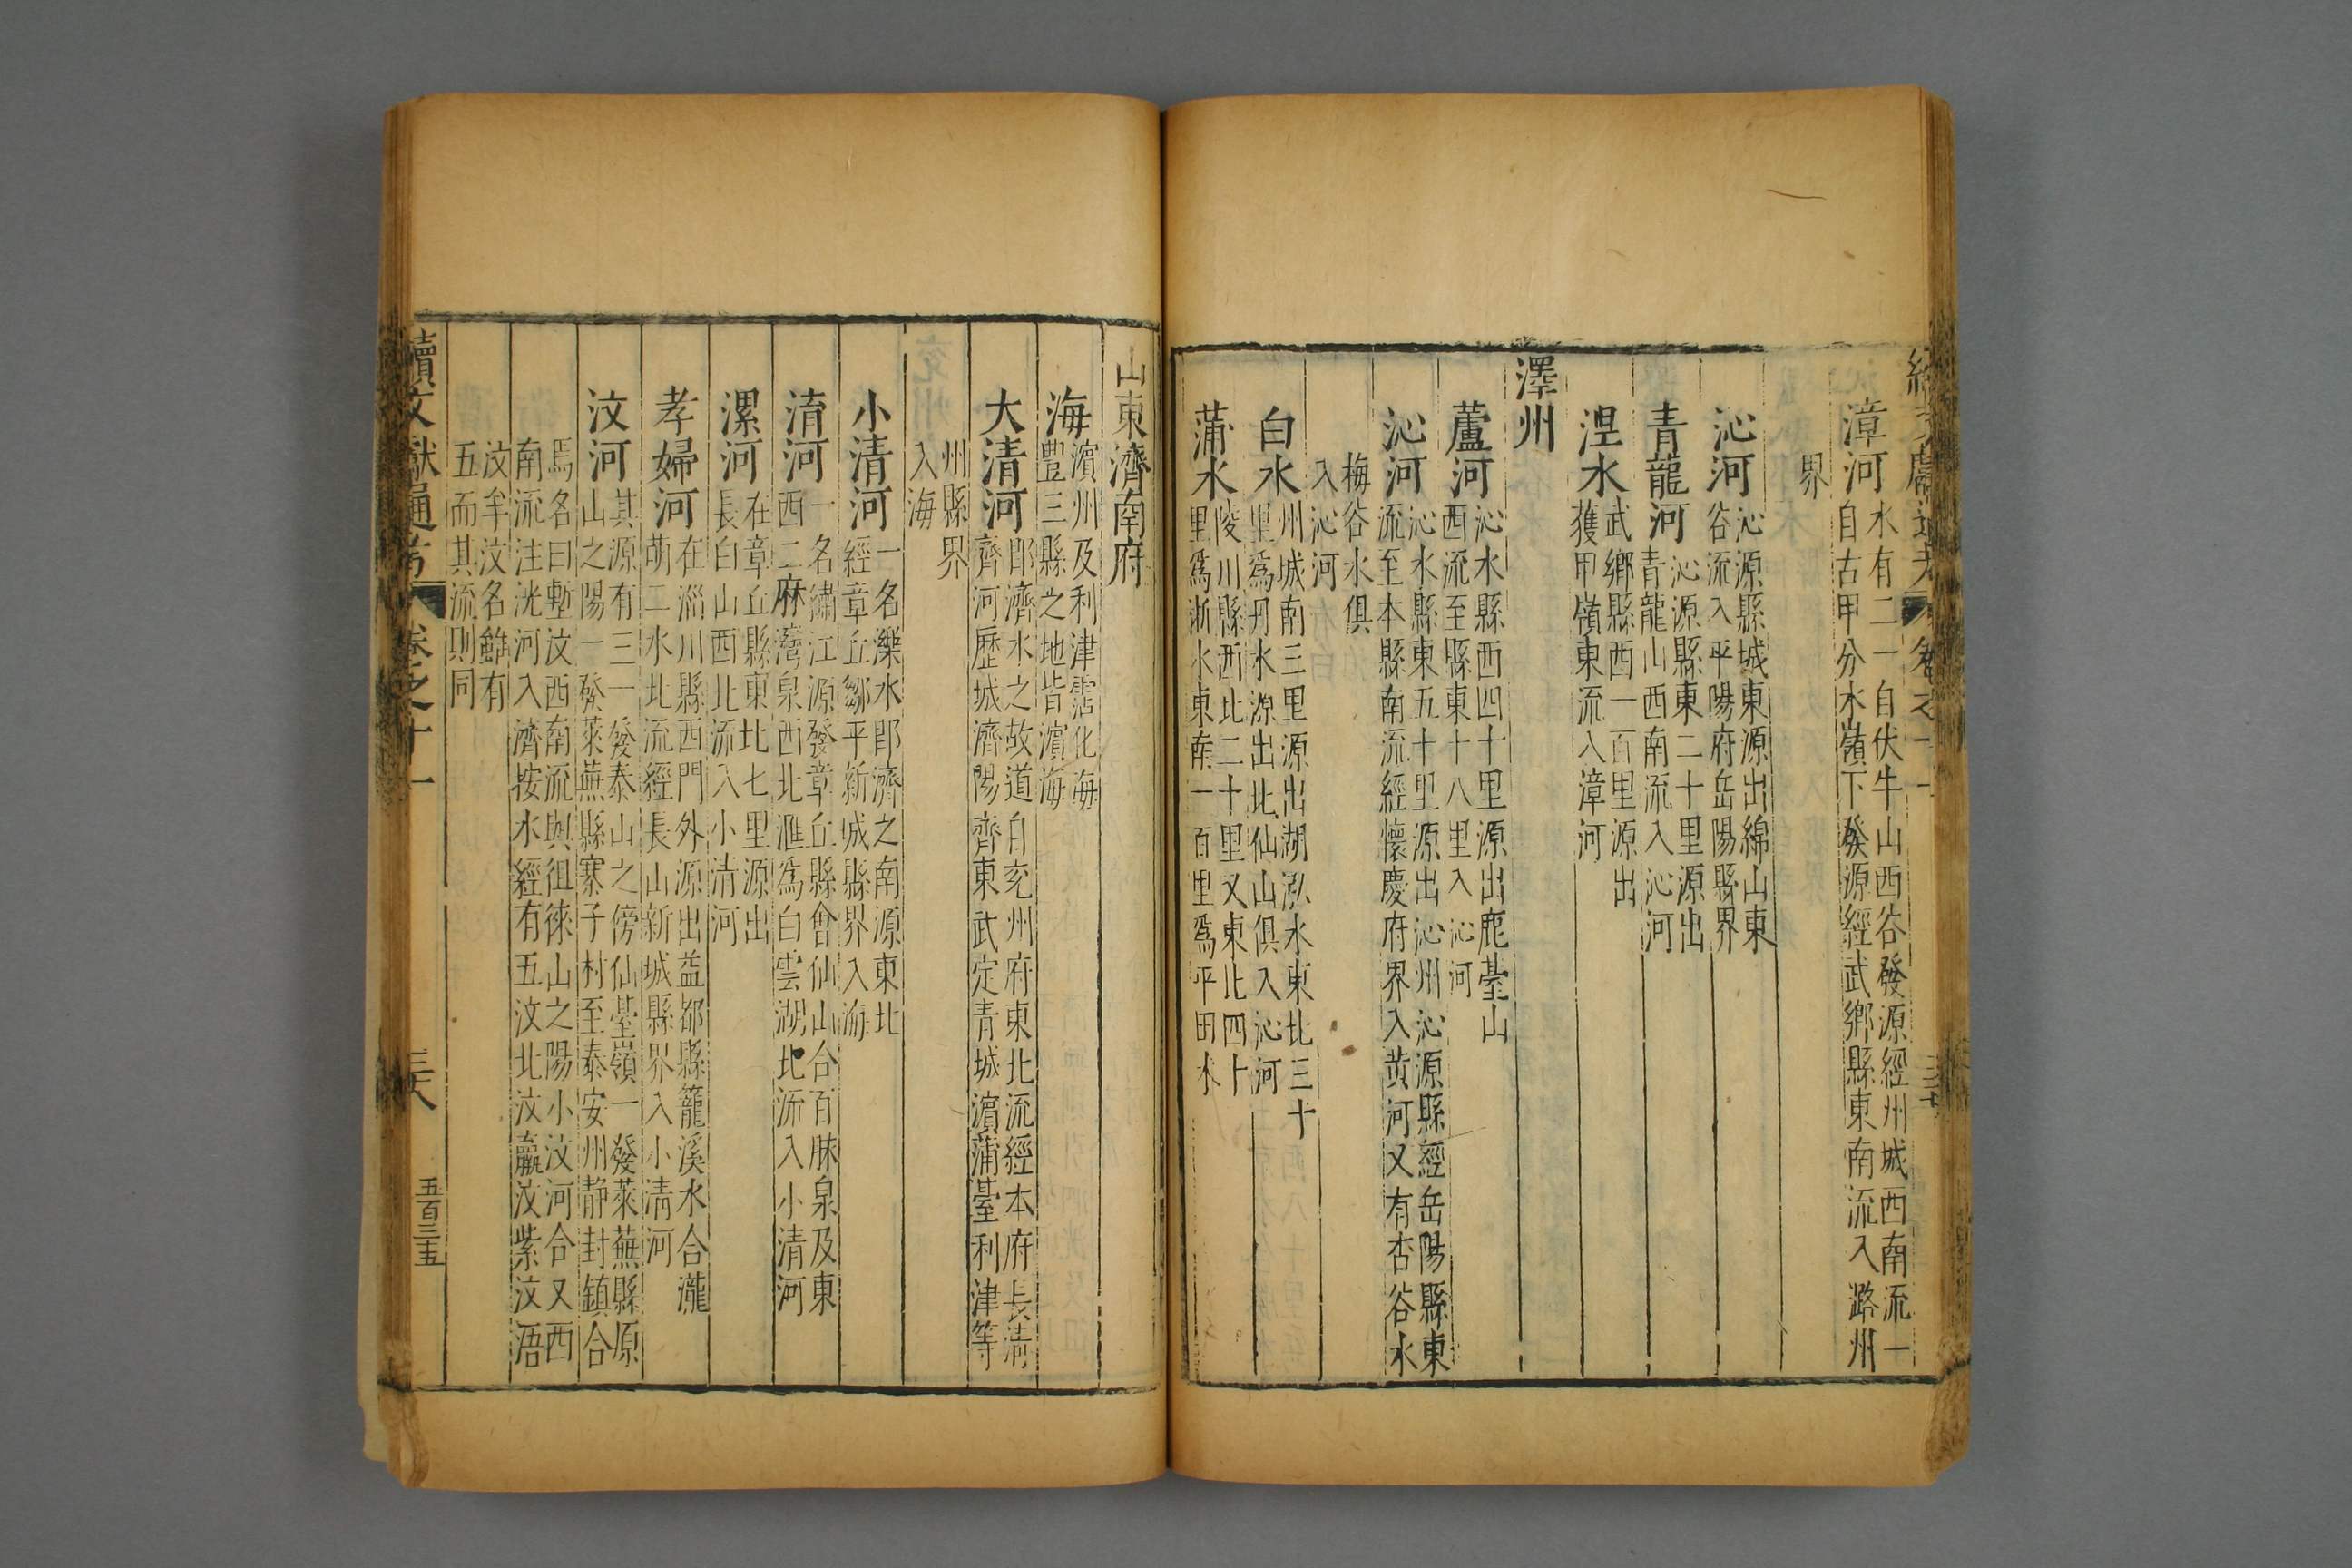 漳河 水有二一自伏牛山西谷發源經州城西南流一
自古甲分水嶺下發源經武鄉縣東南流入潞州
界
沁河 沁源縣城東源出綿山東
谷流入平陽府岳陽縣界
青龍河 沁源縣東二十里源出
青龍山西南流入沁河
涅水 武鄉縣西一百里源出
獲甲嶺東流入漳河
澤州
蘆河 沁水縣西四十里源出鹿臺山
西流至縣東十八里入沁河
沁河 沁水縣東五十里源出沁州沁源縣經岳陽縣東
流至本縣南流經懷慶府界入黄河又有杏谷水
梅谷水俱
入沁河
白水 州城南三里源出湖泓水東北三十
里爲丹水源出北仙山俱入沁河
蒲水 陵川縣西北二十里又東北四十
里爲淅水東南一百里爲平田水
山東濟南府
海 濱州及利津霑化海
豐三縣之地皆濱海
大清河 即濟水之故道自兖州府東北流經本府長清
齊河歷城濟陽齊東武定青城濱蒲臺利津等
州縣界
入海
小清河 一名濼水即濟之南源東北
經章丘鄒平新城縣界入海
淯河 一名繡江源發章丘縣會仙山合百脉泉及東
西二麻灣泉西北滙爲白雲湖北流入小清河
漯河 在章丘縣東北七里源出
長白山西北流入小清河
孝婦河 在淄川縣西門外源出益都縣籠溪水合瀧
萌二水北流經長山新城縣界入小清河
汶河 其源有三一發泰山之傍仙臺嶺一發萊蕪縣原
山之陽一發萊蕪縣寨子村至泰安州静封鎮合
焉名曰塹汶西南流與徂徠山之陽小汶河合又西
南流注洸河入濟按水經有五汶北汶嬴汶紫汶浯
汶牟汶名雖有
五而其流則同
續文獻通考 卷之十一 三八 五百三五